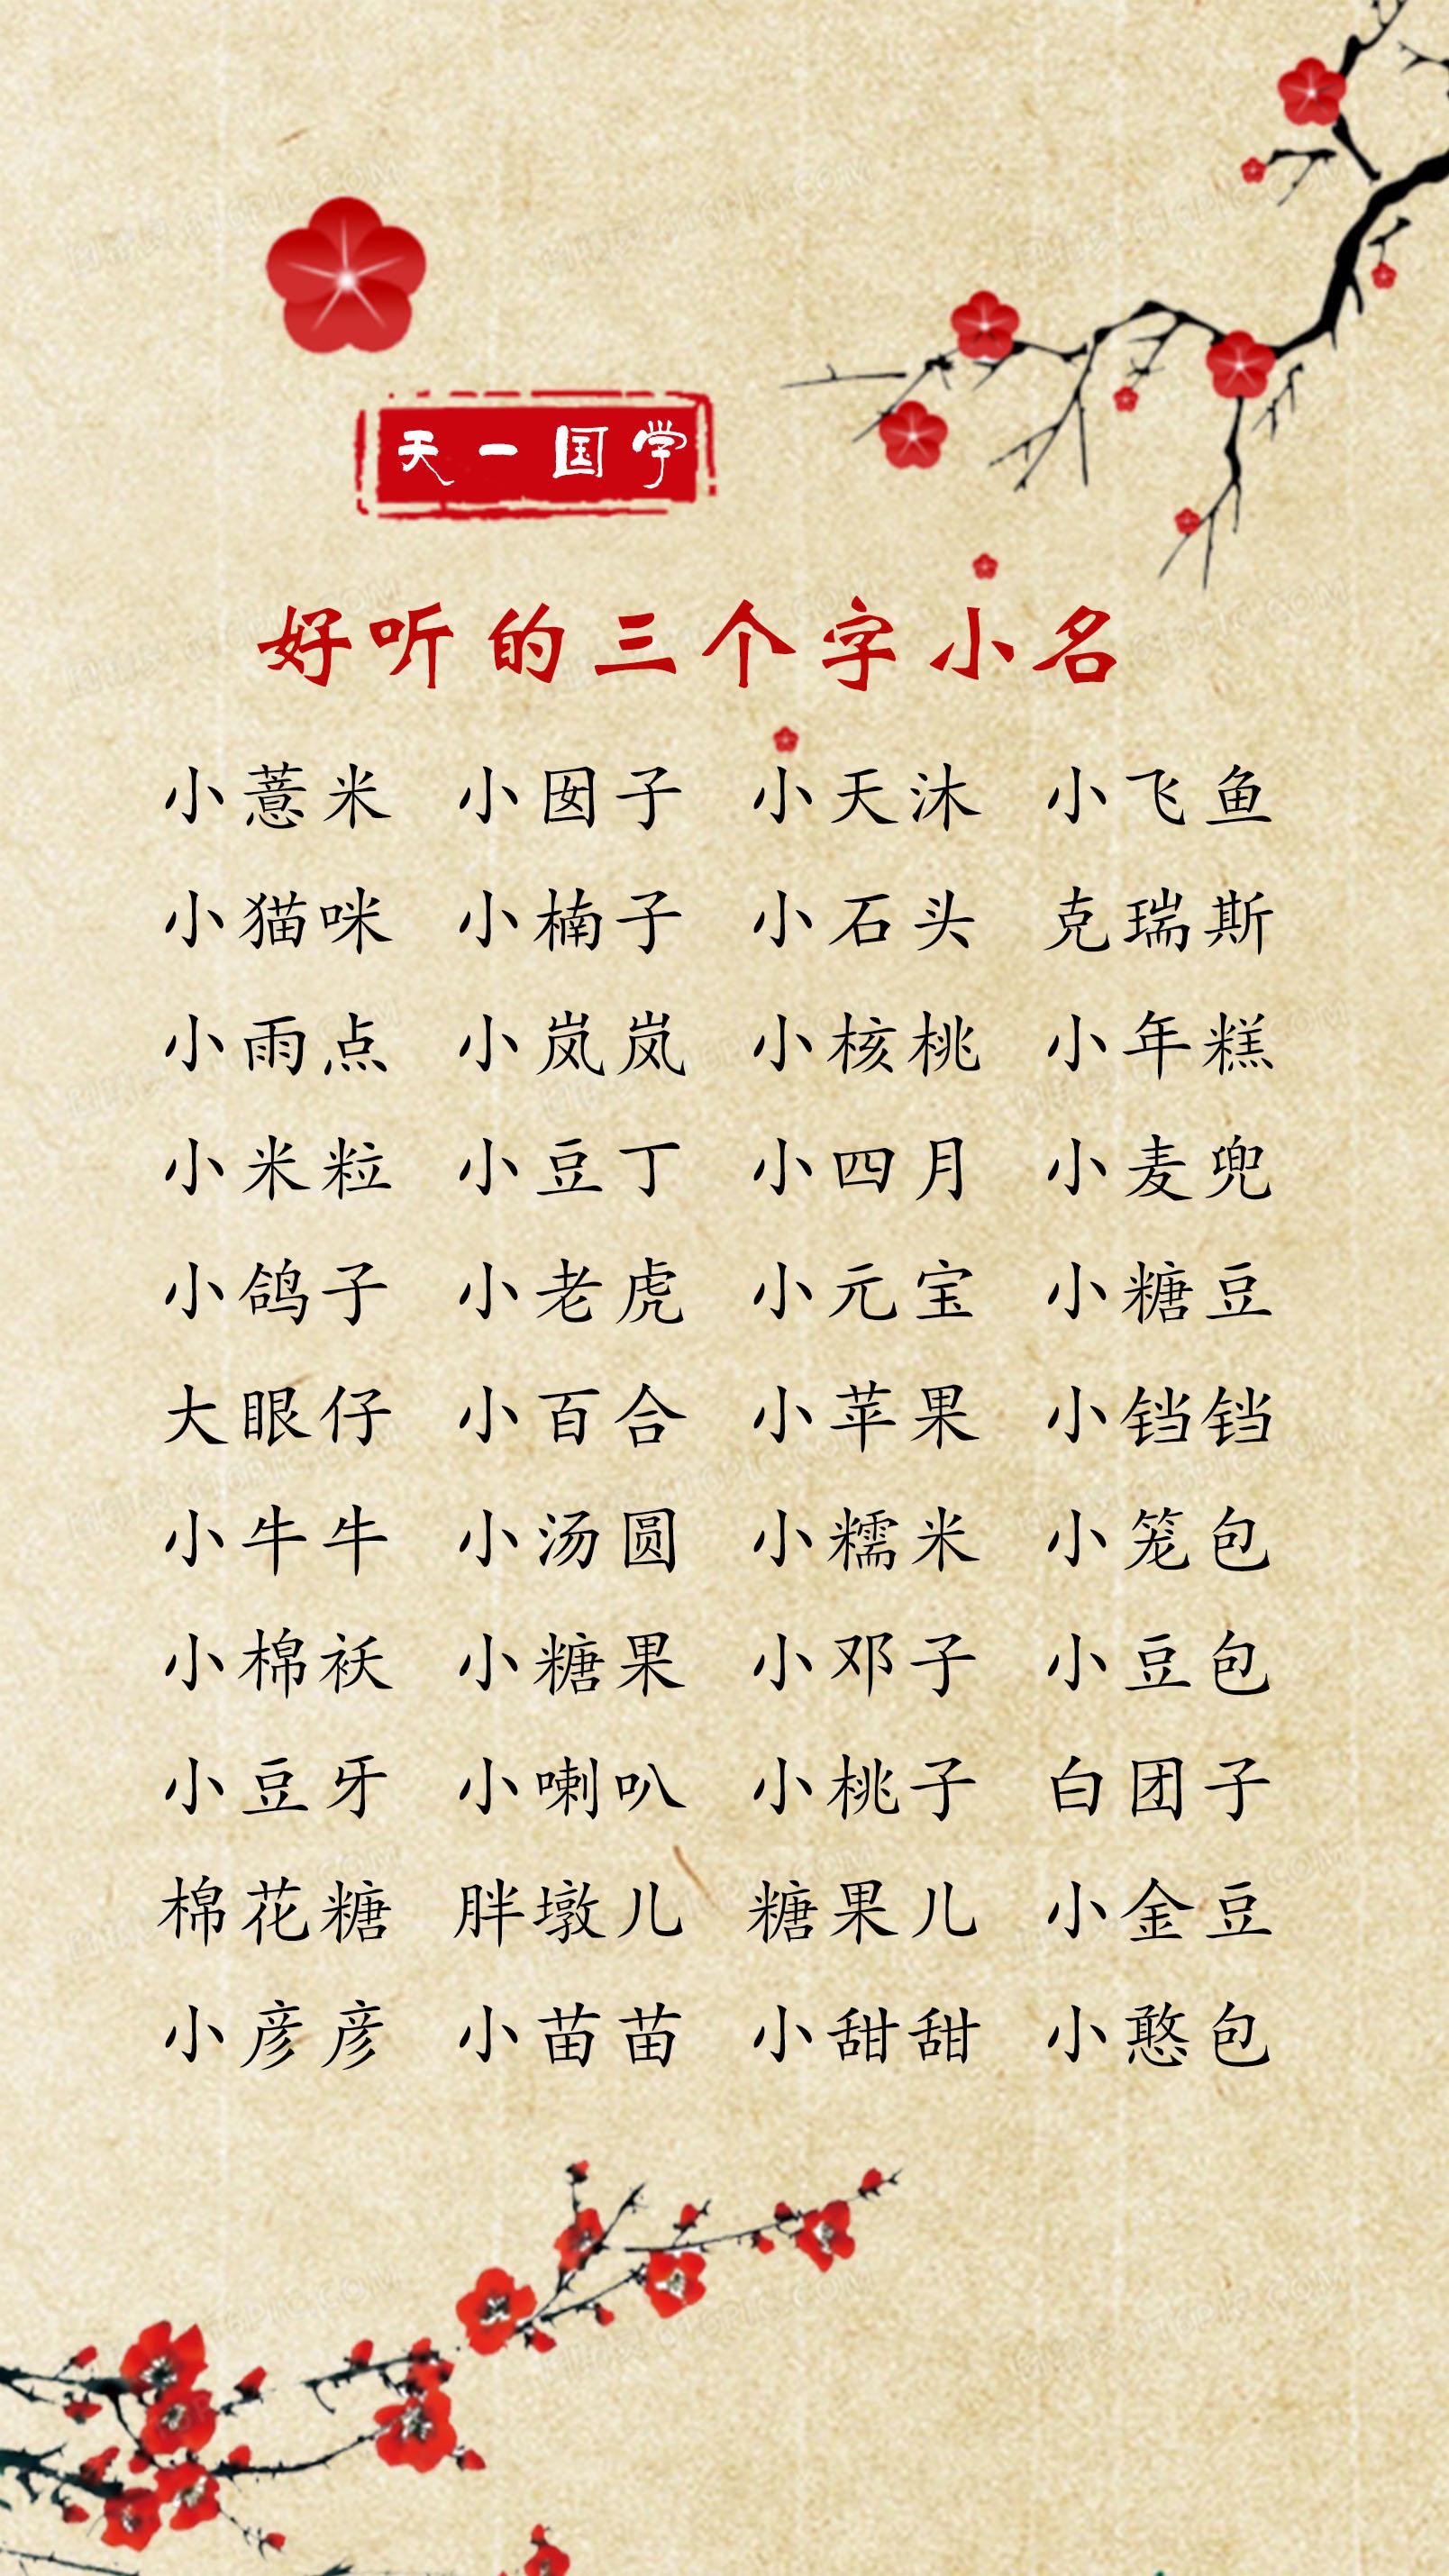 天一国学
好听的三个字小名
小薏米 小囡子 小天沐 小飞鱼
小猫咪 小楠子 小石头 克瑞斯
小雨点 小岚岚 小核桃 小年糕
小米粒 小豆丁 小四月 小麦兜
小鸽子 小老虎 小元宝 小糖豆
大眼仔 小百合 小苹果 小铛铛
小牛牛 小汤圆 小糯米 小笼包
小棉袄 小糖果 小邓子 小豆包
小豆牙 小喇叭 小桃子 白团子
棉花糖 胖墩儿 糖果儿 小金豆
小彦彦 小苗苗 小甜甜 小憨包